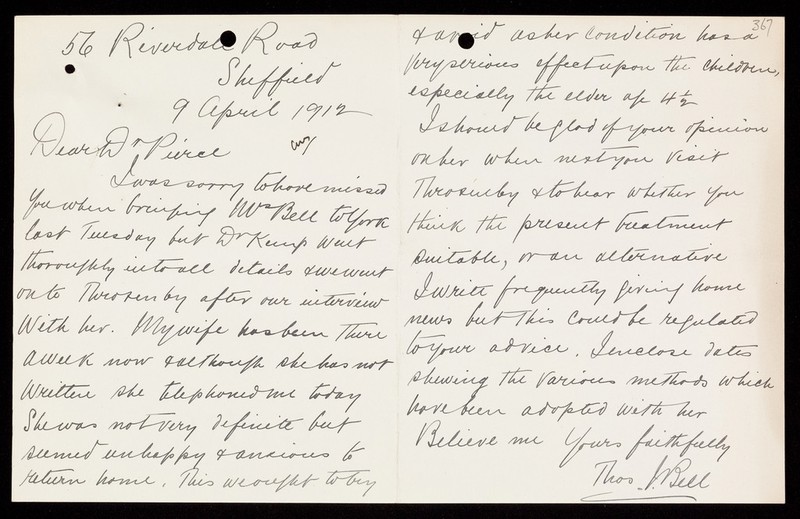 56 Riverdale Road
Sheffield
9 April 1912
Dear Dr Pierce
ans
I was sorry to have missed
you when bringing Mrs Bell to York
last Tuesday but Dr Kemp went
thoroughly into all details & we went
on to Throxenby after our interview
with her. My wife has been there
a week now & although she has not
written she telephoned me today
She was not very definite but
seemed unhappy & anxious to
return home. This we ought to try
367
& avoid as her condition has a
very serious effect upon the children,
especially the elder age 4½
I should be glad of your opinion
on her when next you visit
Throxenby & to hear whether you
think the present treatment
suitable, or an alternative
I write frequently giving home
news but this could be regulated
to your advice. I enclose dates
shewing the various methods which
have been adopted with her
Believe me Yours faithfully
Thos J. Bell